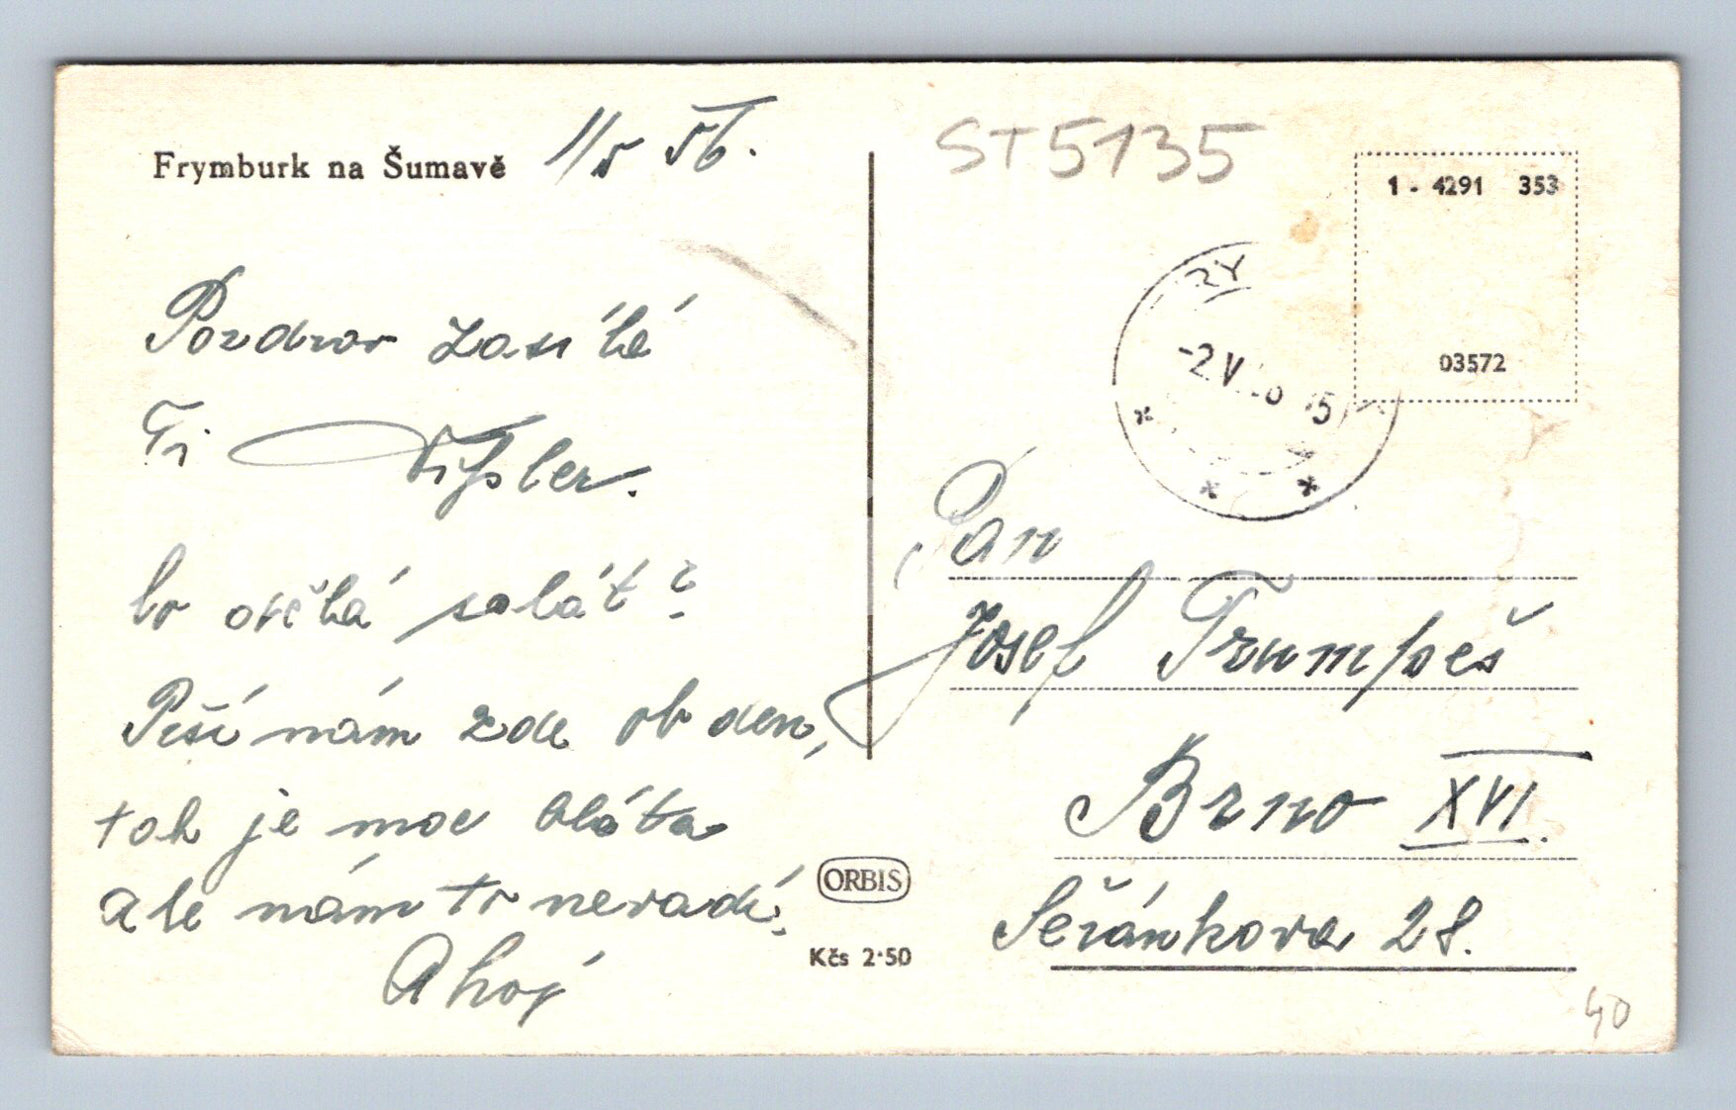 Frymburk na Šumavě
1/5 56.
Pozdrav zasílá
Ti Fissler.
Co salát?
Prší nám zde ob den,
tak je moc bláta
ale nám to nevadí.
Ahoj
ORBIS
Kčs 2·50
ST5135
1 - 4291 353
03572
RY
-2.V
Pan
Josef Trumpeš
Brno XVI.
28.
40